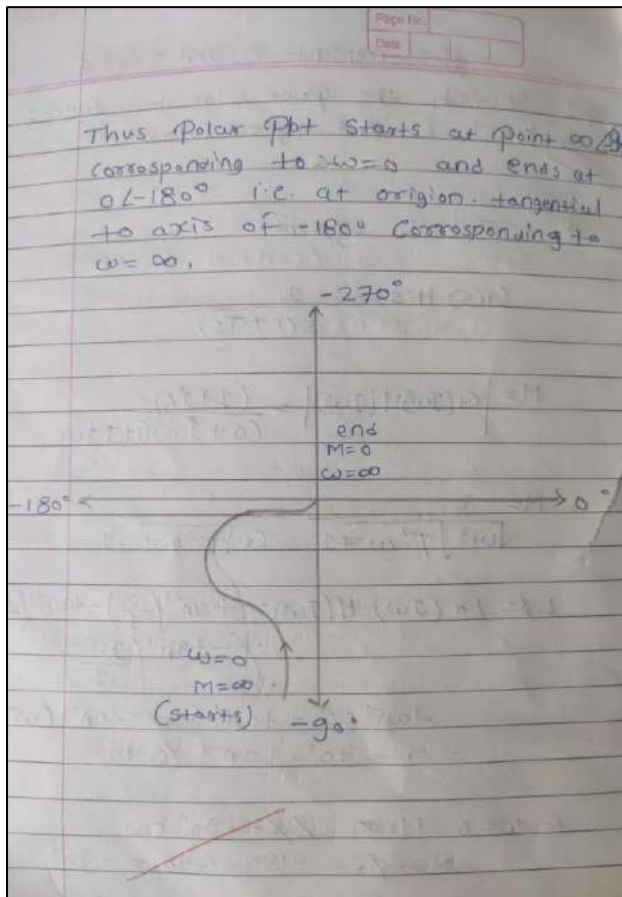 Page No.
Date
Thus Polar Plot starts at point ∞∠
corrosponding to ω=0 and ends at
0∠-180° i.e. at origion. tangential
to axis of -180° Corrosponding to
ω=∞.
-270°
end
M=0
ω=∞
-180°
0°
ω=0
M=∞
(starts)
-90°